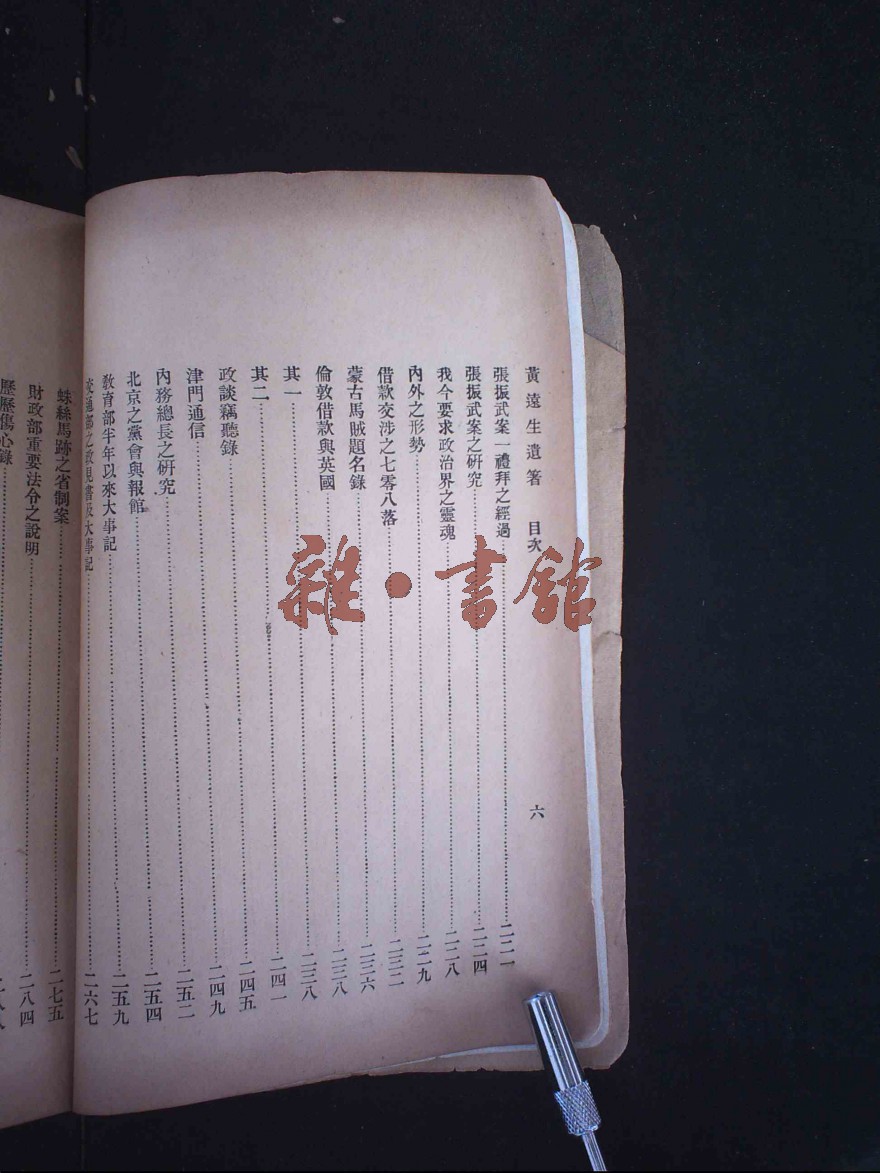 黃遠生遺著 目次 六
張振武案一禮拜之經過 二二一
張振武案之研究 二二四
我今要求政治界之靈魂 二二八
內外之形勢 二二九
借款交涉之七零八落 二三二
蒙古馬賊題名錄 二三六
倫敦借款與英國 二三八
其一 二三八
其二 二四一
政談竊聽錄 二四五
津門通信 二四九
內務總長之研究 二五二
北京之黨會與報館 二五四
教育部半年以來大事記 二五九
交通部之政見書及大事記 二六七
蛛絲馬跡之省制案 二七五
財政部重要法令之說明 二八四
歷歷傷心錄
雜·書館